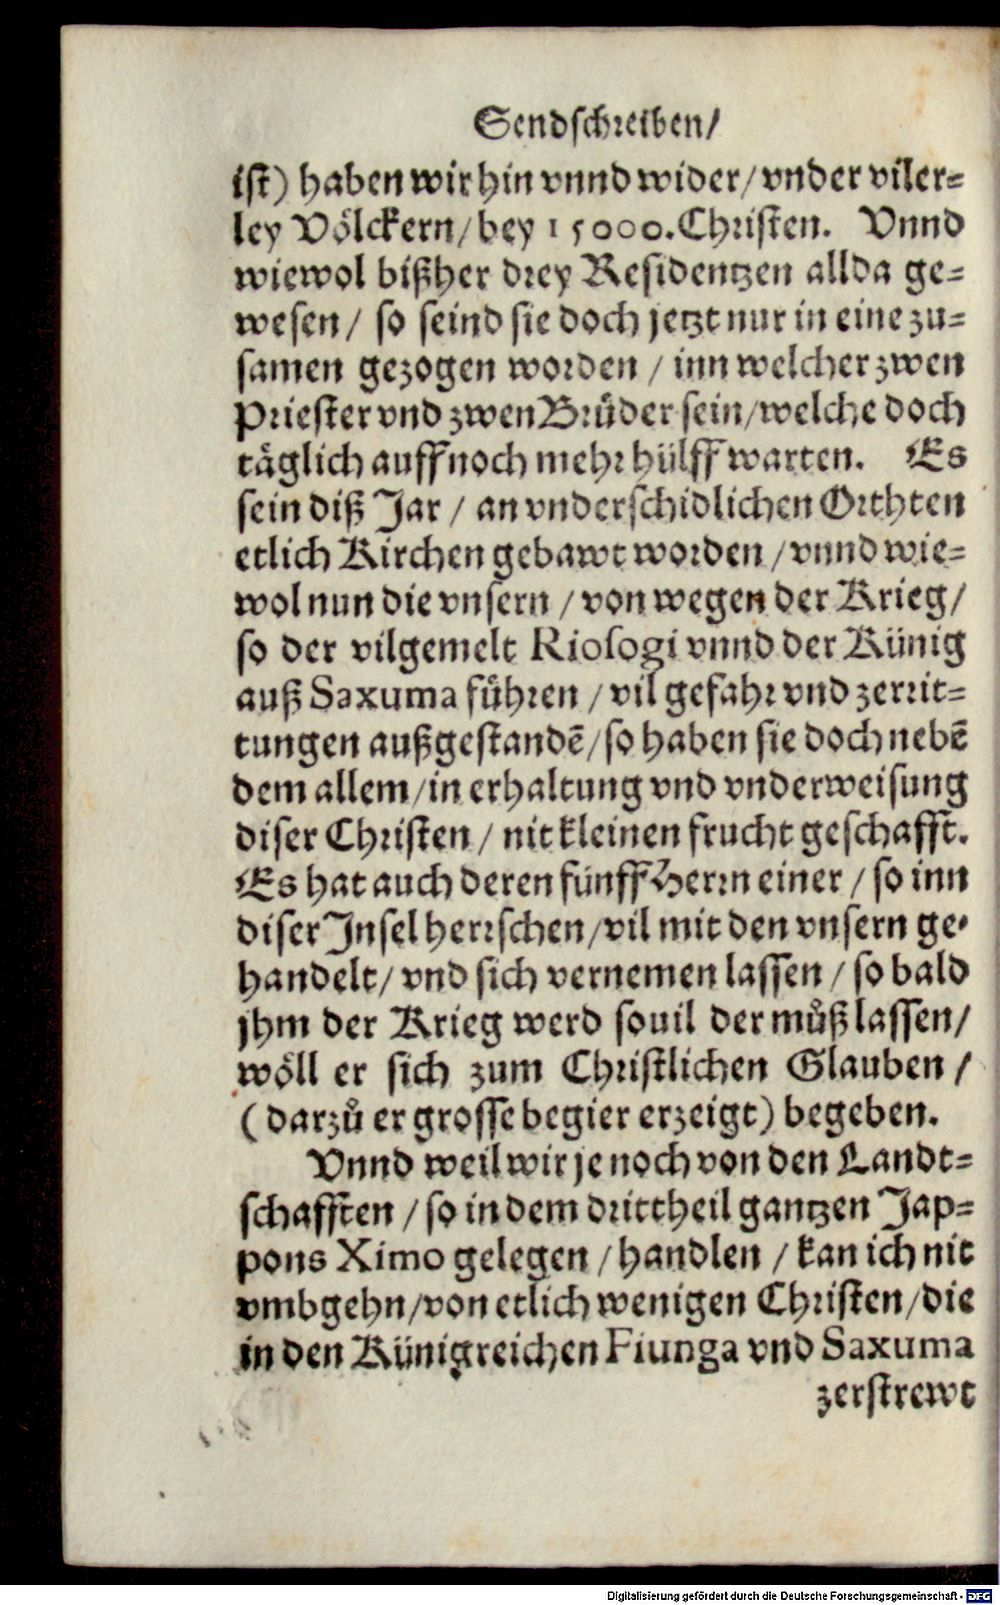 Sendschreiben/
ist) haben wir hin vnnd wider/ vnder viler=
ley Völckern/ bey 15000. Christen. Vnnd
wiewol bißher drey Residentzen allda ge=
wesen/ so seind sie doch jetzt nur in eine zu=
samen gezogen worden / inn welcher zwen
Priester vnd zwen Brůder sein/ welche doch
täglich auff noch mehr hülff warten. Es
sein diß Jar / an vnderschidlichen Orthten
etlich Kirchen gebawt worden / vnnd wie=
wol nun die vnsern / von wegen der Krieg/
so der vilgemelt Riosogi vnnd der Künig
auß Saxuma führen / vil gefahr vnd zerrit=
tungen außgestandẽ/ so haben sie doch nebẽ
dem allem/ in erhaltung vnd vnderweisung
diser Christen / nit kleinen frucht geschafft.
Es hat auch deren fünff Herrn einer / so inn
diser Insel herrschen/ vil mit den vnsern ge=
handelt/ vnd sich vernemen lassen / so bald
jhm der Krieg werd souil der můß lassen/
wöll er sich zum Christlichen Glauben /
(darzů er grosse begier erzeigt) begeben.
Vnnd weil wir je noch von den Landt=
schafften / so in dem drittheil gantzen Jap=
pons Ximo gelegen / handlen / kan ich nit
vmbgehn/ von etlich wenigen Christen/ die
in den Künigreichen Fiunga vnd Saxuma
zerstrewt
Digitalisierung gefördert durch die Deutsche Forschungsgemeinschaft - DFG